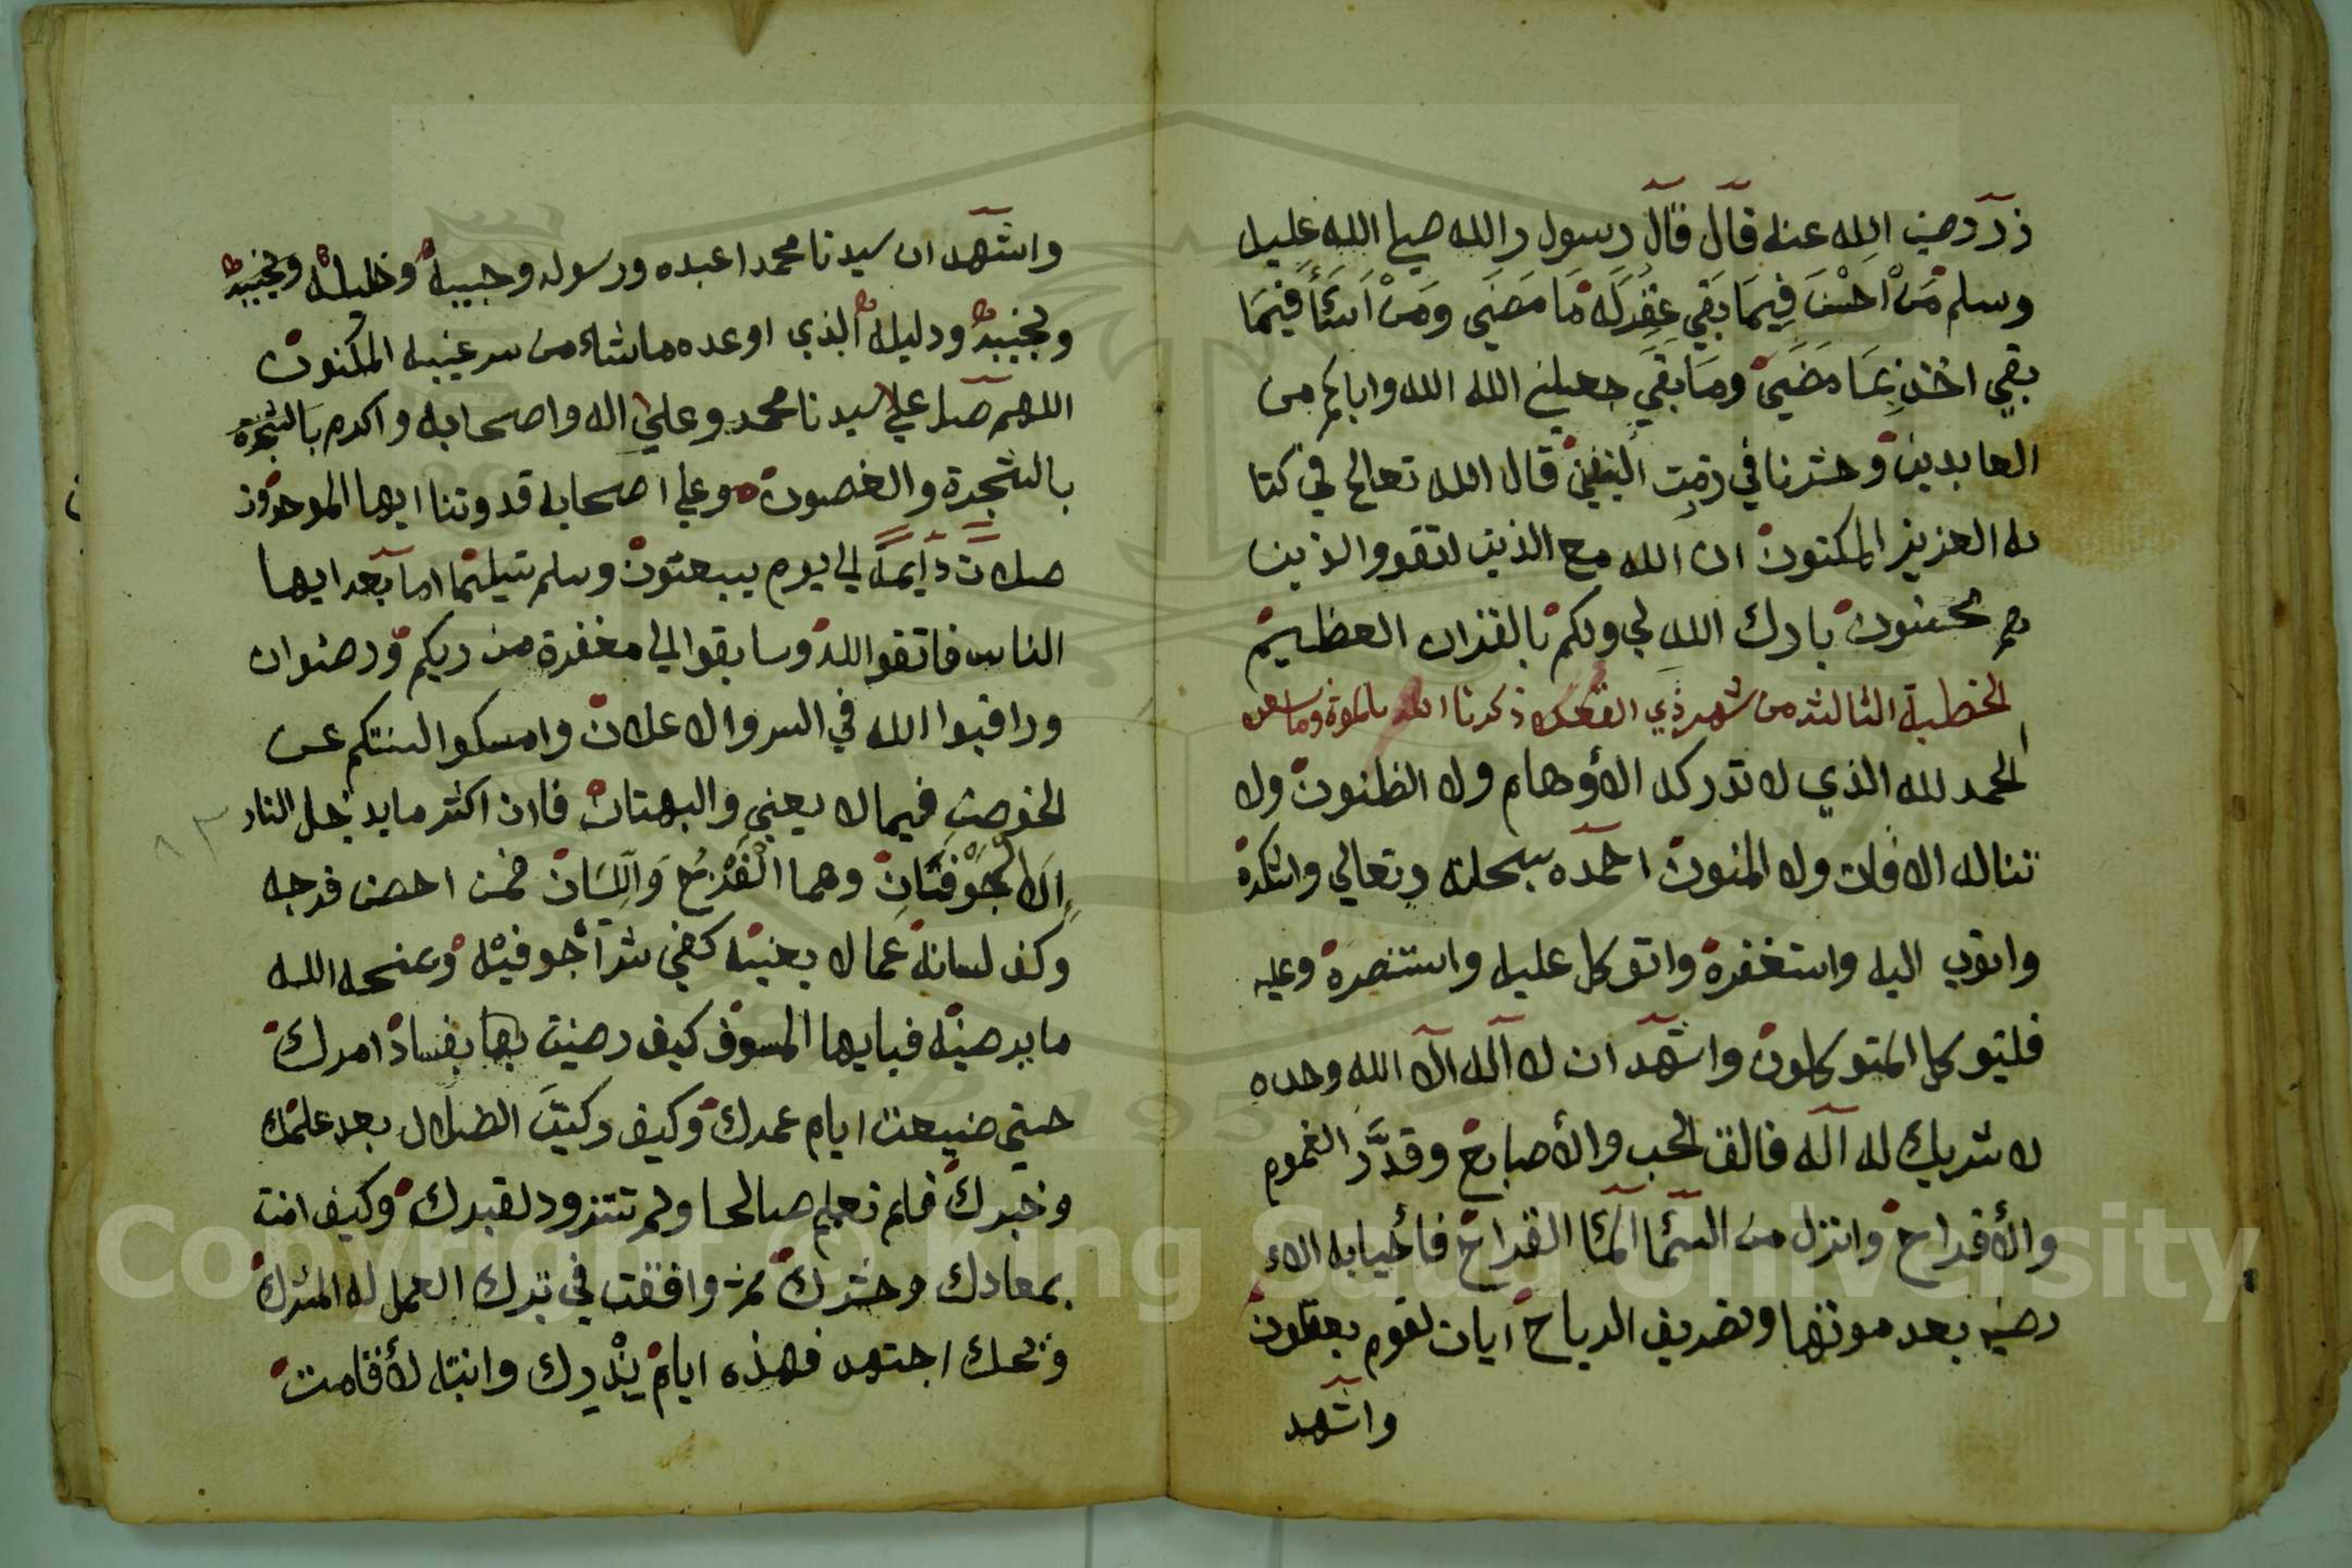 ذر رضي الله عنه قال قال رسول ر الله صلي الله عليه
وسلم مَنْ اَحْسَنَ فِيمَا بَقِي غُفِرَ لَهُ مَا مَضَي وَمَنْ اَسَئَأَ فِيمَا
بقي اخذ بِمَا مَضَيَ وَمَا بَقِيَ جعلني الله الله واياكم من
العابدين وحشرنا في زمرت قال الله تعالي في كتا
به العزيز المكنون ان الله مع الذين اتقو والذين
هم محسنون بارك الله لي ولكم بالقران العظيم
الخطبة الثالثه من شهر ذي القعده ذكرنا الله بالموة وما بعده
الحمد لله الذي لا تدركه الأوهام ولا الظنون ولا
تناله الافات ولا المنون احمده سبحانه وتعالي واشكره
واتوب اليه واستغفره واتوكل عليه واستنصره وعليه
فليتوكل المتوكلون واشهد ان لا اله الا الله وحده
لا شريك له اله فالق الحب والأصباح وقدَّر الغموم
والأفراح وانزل من السئما المئا القراح فأحيا به الاء
رضه بعد موتها وتصريف الرياح ايات لقوم يعقلون
واشهد
واشهد ان سيدنا محمدا عبده ورسوله وحبيبه وخليله ونجيبه
ونجيبه ودليله الذي اوعده ماشاء من سر غيبه المكنون
اللهم صل علي سيدنا محمد وعلي اله واصحابه واكرم بالشجرة
بالشجرة والغصون وعلي اصحابه قدوتنا ايها الموحدون
صلات دايمةً لي يوم يبعثون وسلم تيلتما اما بعد ايها
الناس فاتقوا الله وسابقوا الي مغفرة من ربكم ورضوان
وراقبوا الله في السر والاعلان وامسكوا السنتكم عن
الخوض فيما لا يعني والبهتان فان اكثر ما يدخل النار
اِلَا الْجَوْفَتَانِ وهما الْفَرْجُ وَاللِّسَان فمن احصن فرجه
وكف لسانه عما لا يعنيه كفي شرأ جوفيه ومنحه الله
ما يرضيه فيايها المسوف كيف رضيت بها بفساد امرك
حتي ضيعت ايام عمرك وكيف ركبت الضلال بعد علمك
وخبرك فلم تعلم صالحا ولم تتزود لقبرك وكيف امنة
بمعادك وحشرك ثم وافقت في ترك العمل له المشرك
ويحك اجتهد فهذه ايام بذرك وانتبه لأقامت